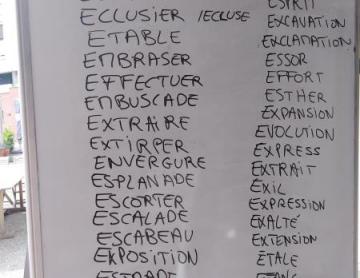 ECLUSIER /ECLUSE
ETABLE
EMBRASER
EFFECTUER
EMBUSCADE
EXTRAIRE
EXTIRPER
ENVERGURE
ESPLANADE
ESCORTER
ESCALADE
ESCABEAU
EXPOSITION
ESPRIT
EXCAVATION
EXCLAMATION
ESSOR
EFFORT
ESTHER
EXPANSION
EVOLUTION
EXPRESS
EXTRAIT
EXIL
EXPRESSION
EXALTÉ
EXTENSION
ETALE